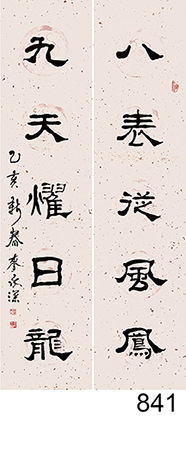 八表從風鳳
九天燿日龍
乙亥新春李永深
841